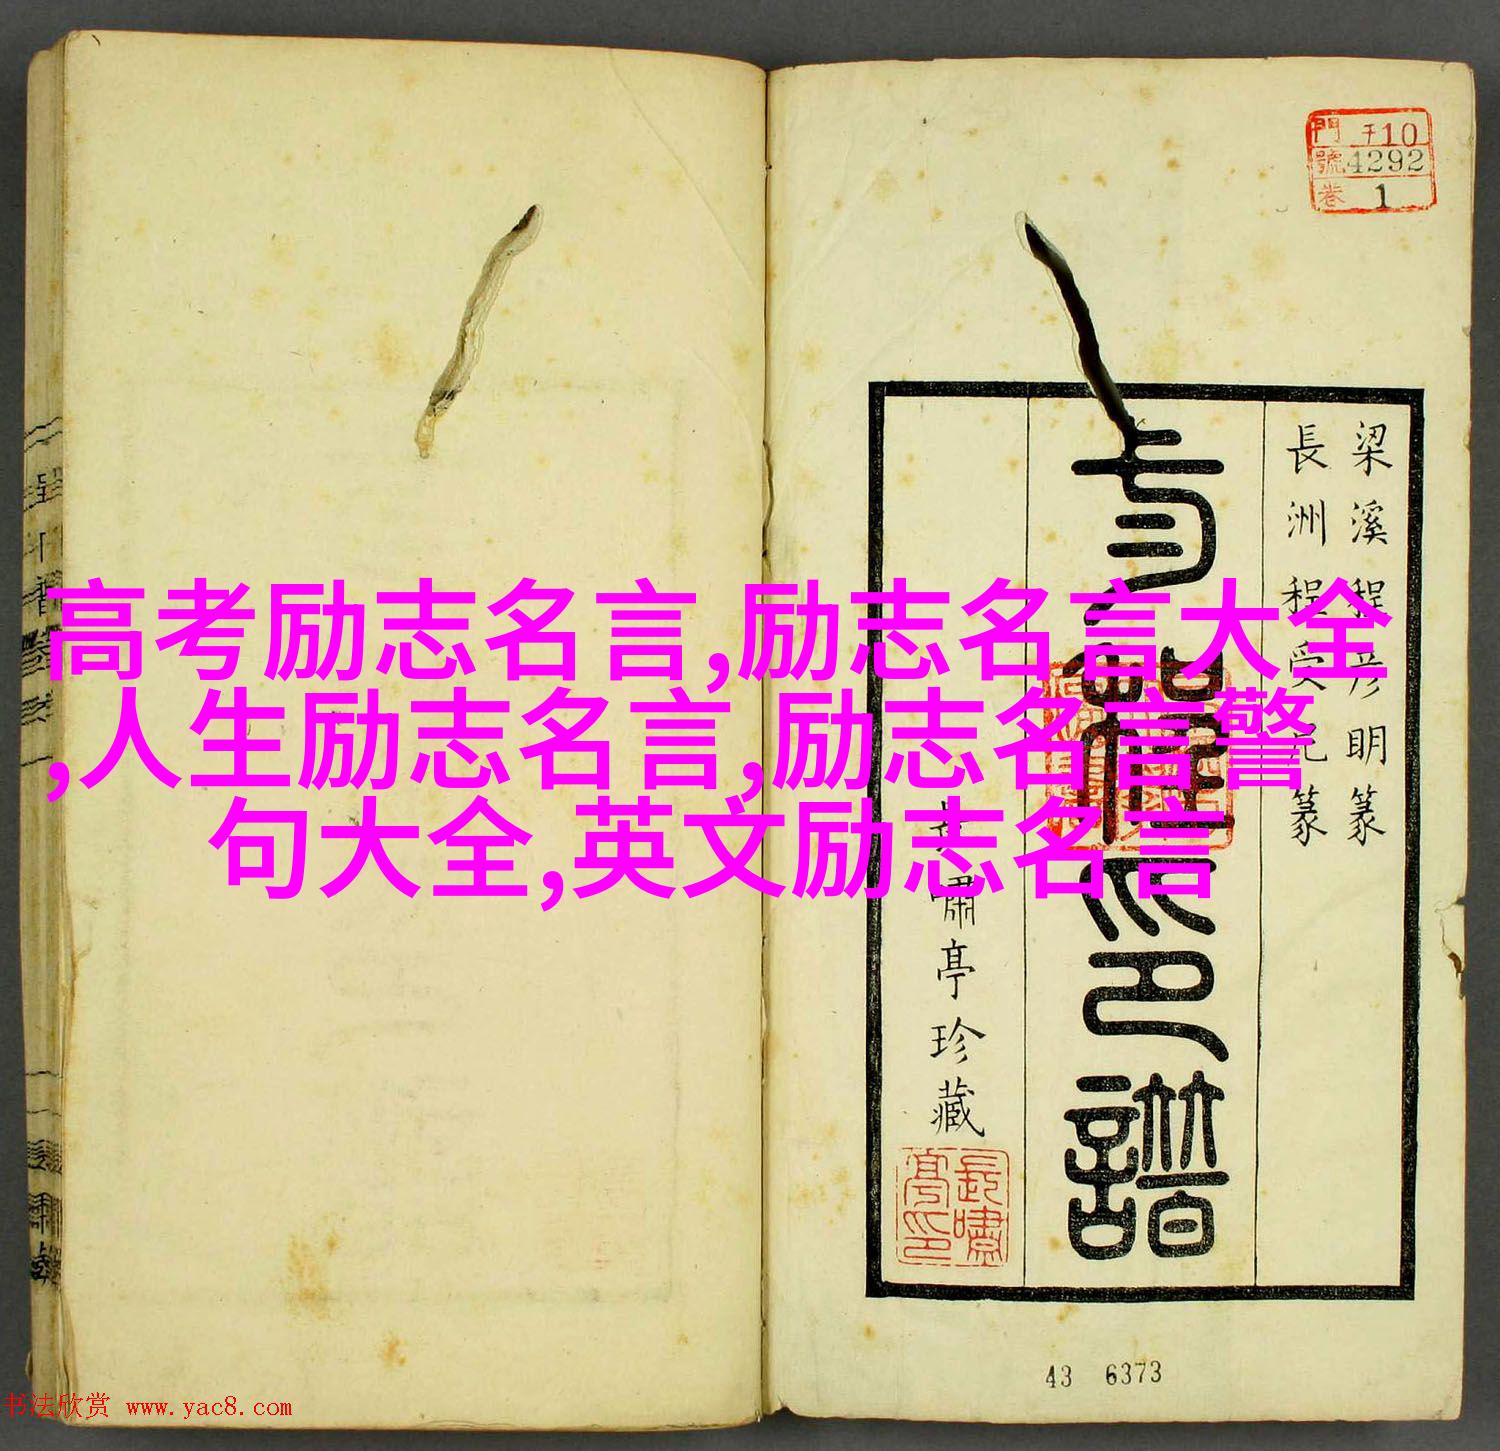 門 于10
號 4292
卷 1
梁溪程彦明篆
長洲程受兄篆
印譜
嘯亭珍藏
長嘯亭印
高考励志名言,励志名言大全
,人生励志名言,励志名言警
句大全,英文励志名言
43 6373
书法欣赏 www.yac8.com